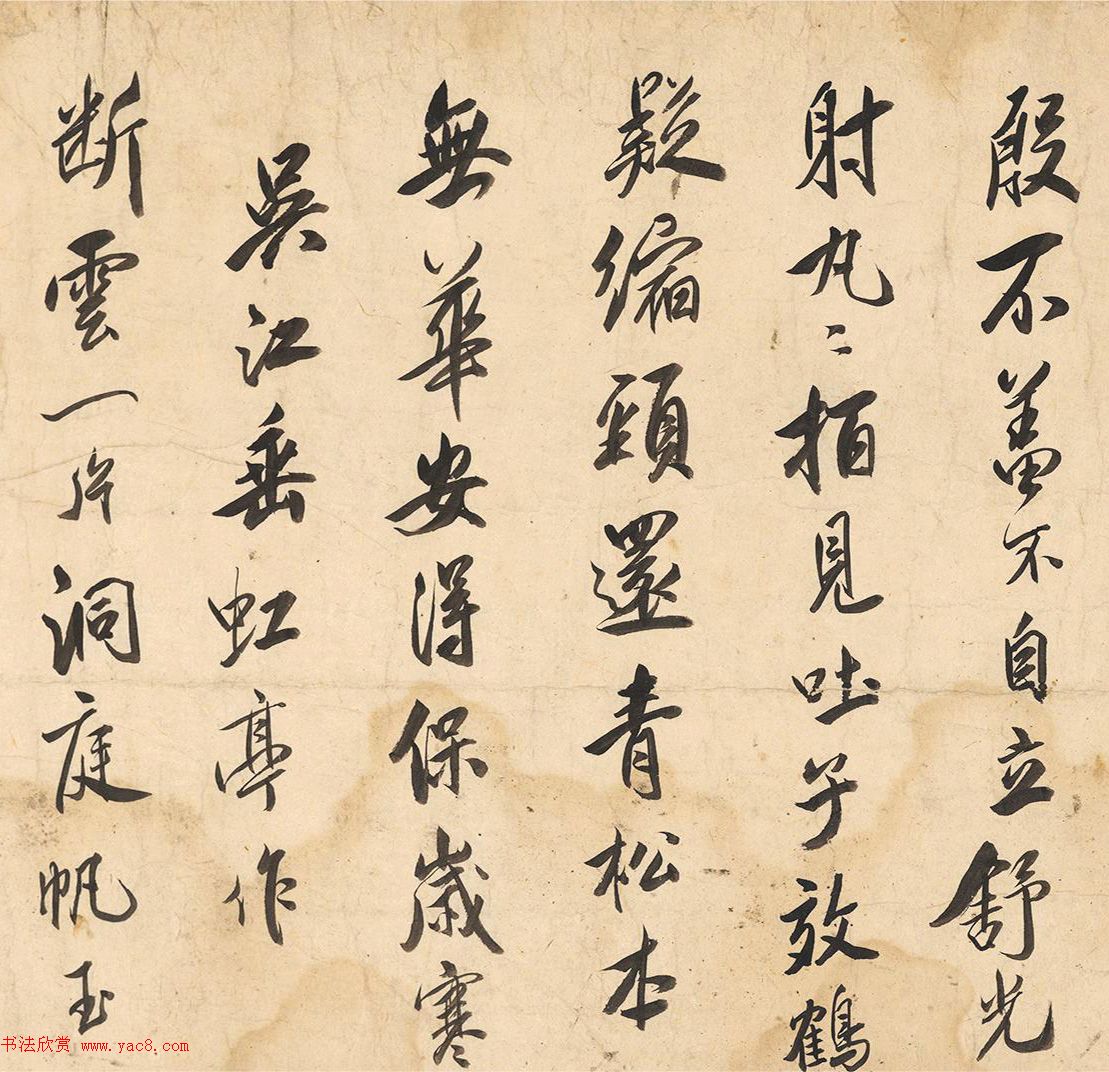 殷不羞不自立舒光
射丸〻柏見吐子效鶴
疑縮頸還青松本
無華安得保歲寒
吳江垂虹亭作
断雲一片洞庭帆玉
书法欣赏 www.yac8.com